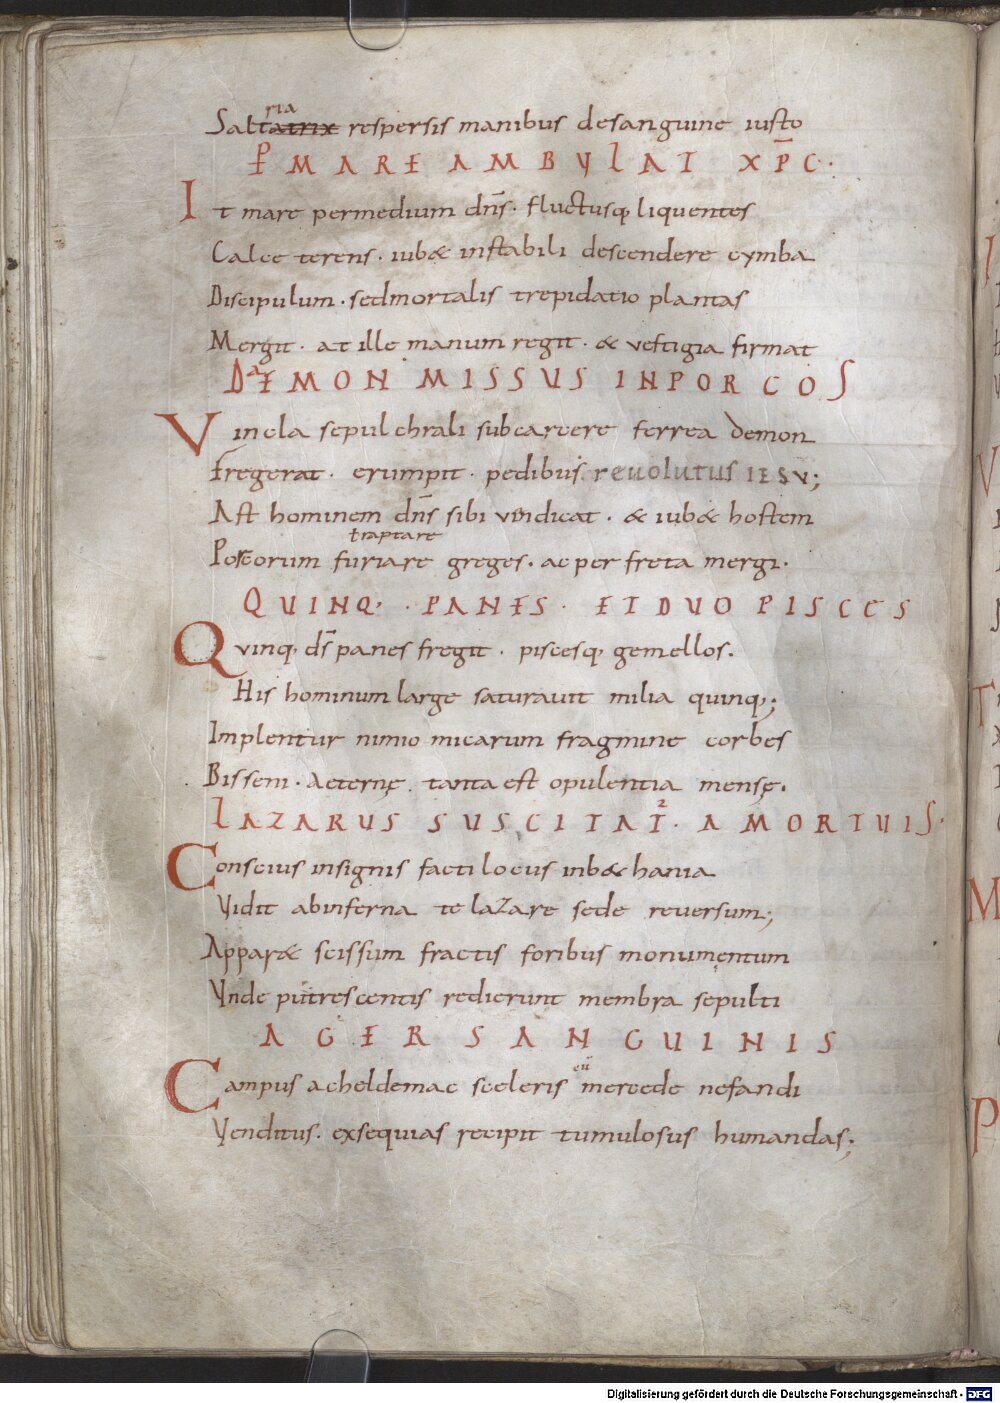 Saltatrix ria respersis manibus desanguine iusto
P MARE AMBVLAT XP̅C·
It mare permedium dn̅s· fluctusq; liquentes
Calce terens· iub& instabili descendere cymba
Discipulum· sedmortalis trepidatio plantas
Mergit· at ille manum regit· & vestigia firmat
DaEMON MISSUS INPORCOS
Vincla sepulchrali subcarcere ferrea demon
Fregerat· erumpit· pedibus revolutus IESV;
Ast hominem dn̅s sibi vindicat· & iub& hostem
traptare
Porcorum furiare greges· ac per freta mergi·
QUINQ; · PANES· ET DUO PISCES
Qvinq; ds̅ panes fregit· piscesq; gemellos.
His hominum large saturauit milia quinq;;
Implentur nimio micarum fragmine corbes
Bisseni· Aeternę tanta est opulentia mensę.
LAZARUS SUSCITAT· A MORTUIS·
Conscius insignis facti locus inb&hania
Vidit abinferna te laZare sede reversum;
Appar& scissum fractis foribus monumentum
Vnde putrescentis redierunt membra sepulti
AGER SANGUINIS
Campus acheldemac sceleris mercede nefandi
Venditus· exsequias recipit tumulosus humandas;
Digitalisierung gefördert durch die Deutsche Forschungsgemeinschaft - DFG